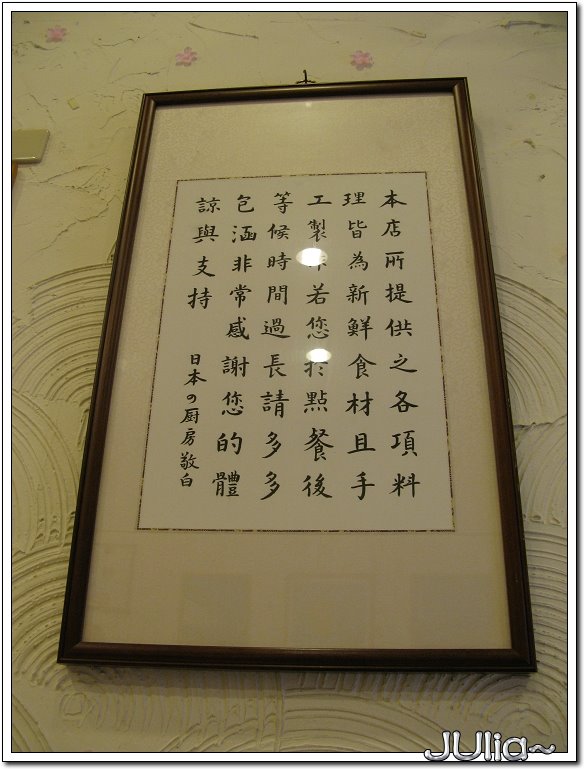 本店所提供之各項料
理皆為新鮮食材且手
工製作若您於點餐後
等候時間過長請多多
包涵非常感謝您的體
諒與支持
日本の厨房敬白
JUlia~